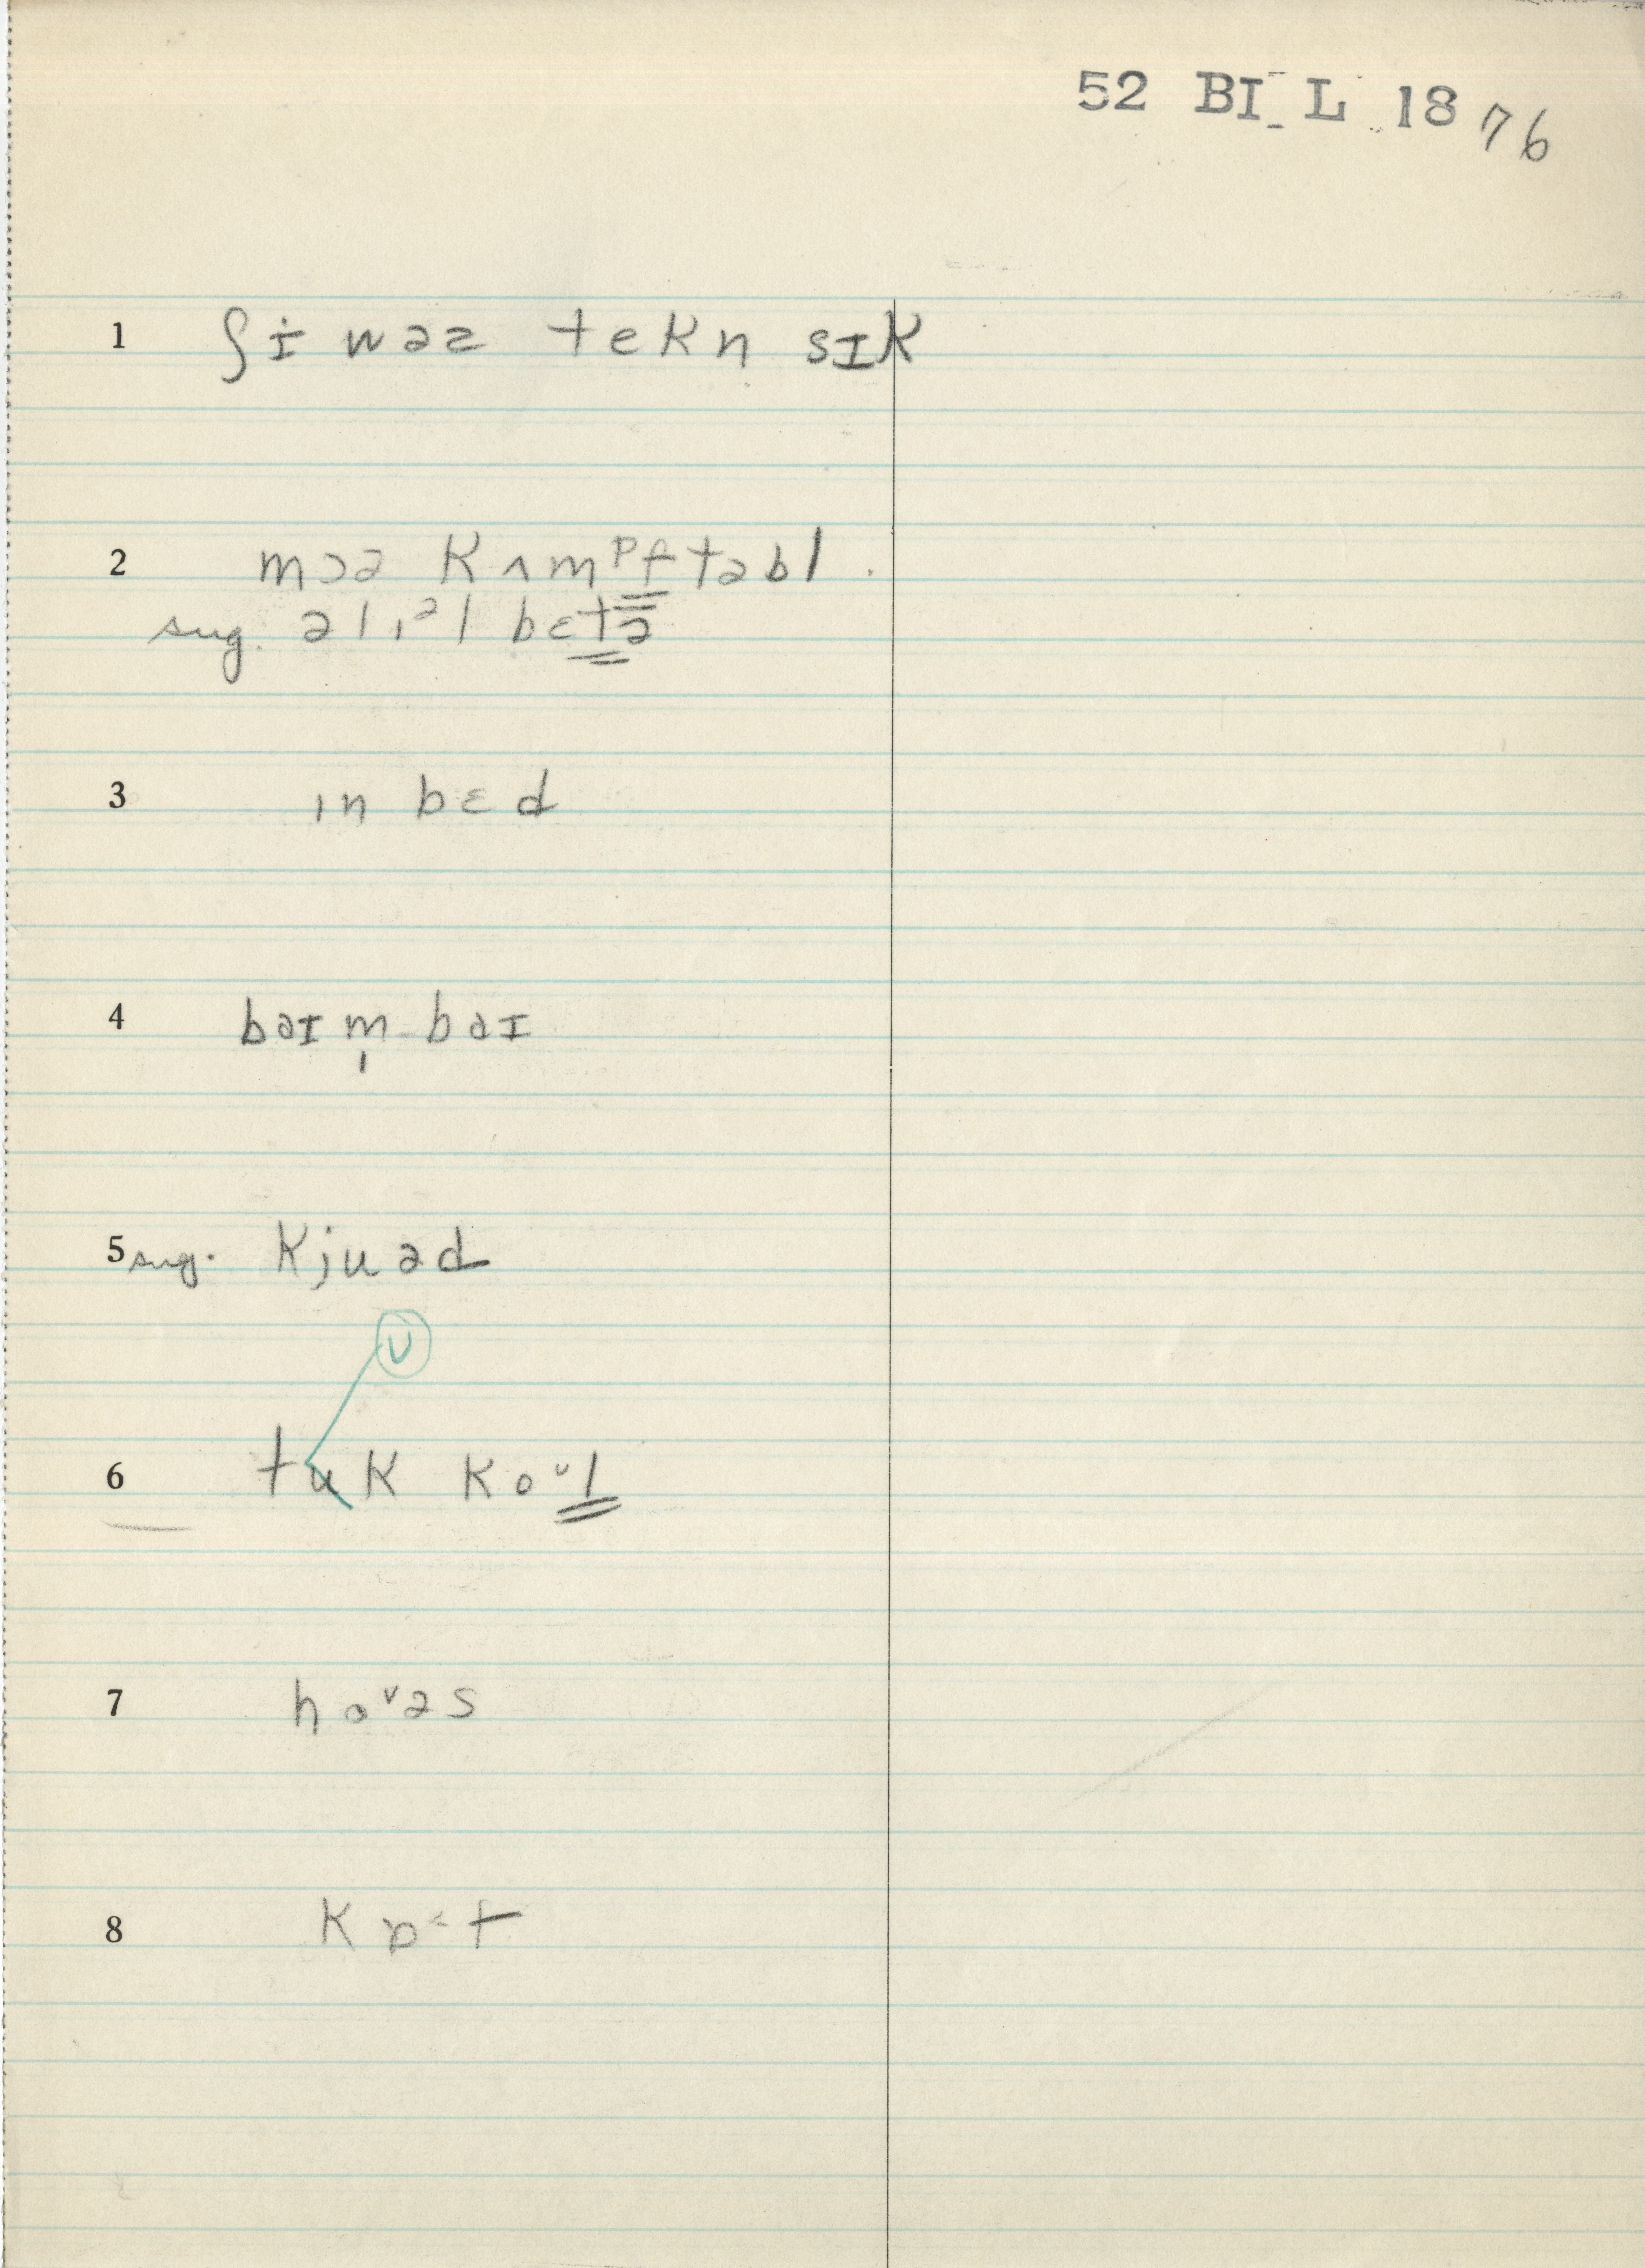 52 BI L 18 76
1 ʃɨ wəz tekn sɪk
2 mɔə kʌmᵖftəbl
sug. ə lɪᵊl bɛtə
3 ɪn bɛd
4 baɪm̩-baɪ
5 sug. kjuəd
ʊ
6 tuk koᶷl
7 hoᶷəs
8 kɒ˂f